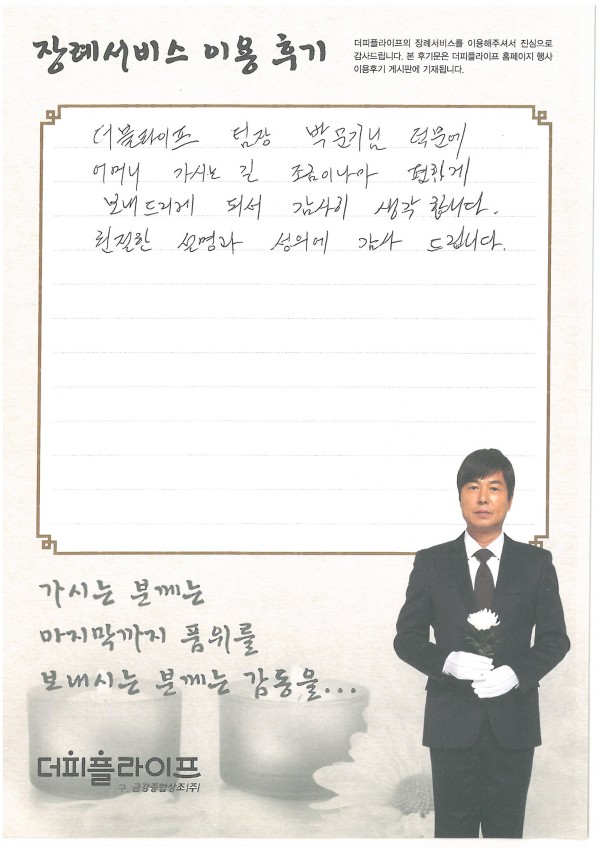 장례서비스 이용 후기
더피플라이프의 장례서비스를 이용해주셔서 진심으로
감사드립니다. 본 후기문은 더피플라이프 홈페이지 행사
이용후기 게시판에 기재됩니다.
더블라이프 팀장 박문기님 덕문에
어머니 가시는 길 조금이나마 편하게
보내드리게 되서 감사히 생각 합니다.
친절한 설명과 성의에 감사 드립니다.
가시는 분께는
마지막까지 품위를
보내시는 분께는 감동을...
더피플라이프
구. 금강종합상조(주)